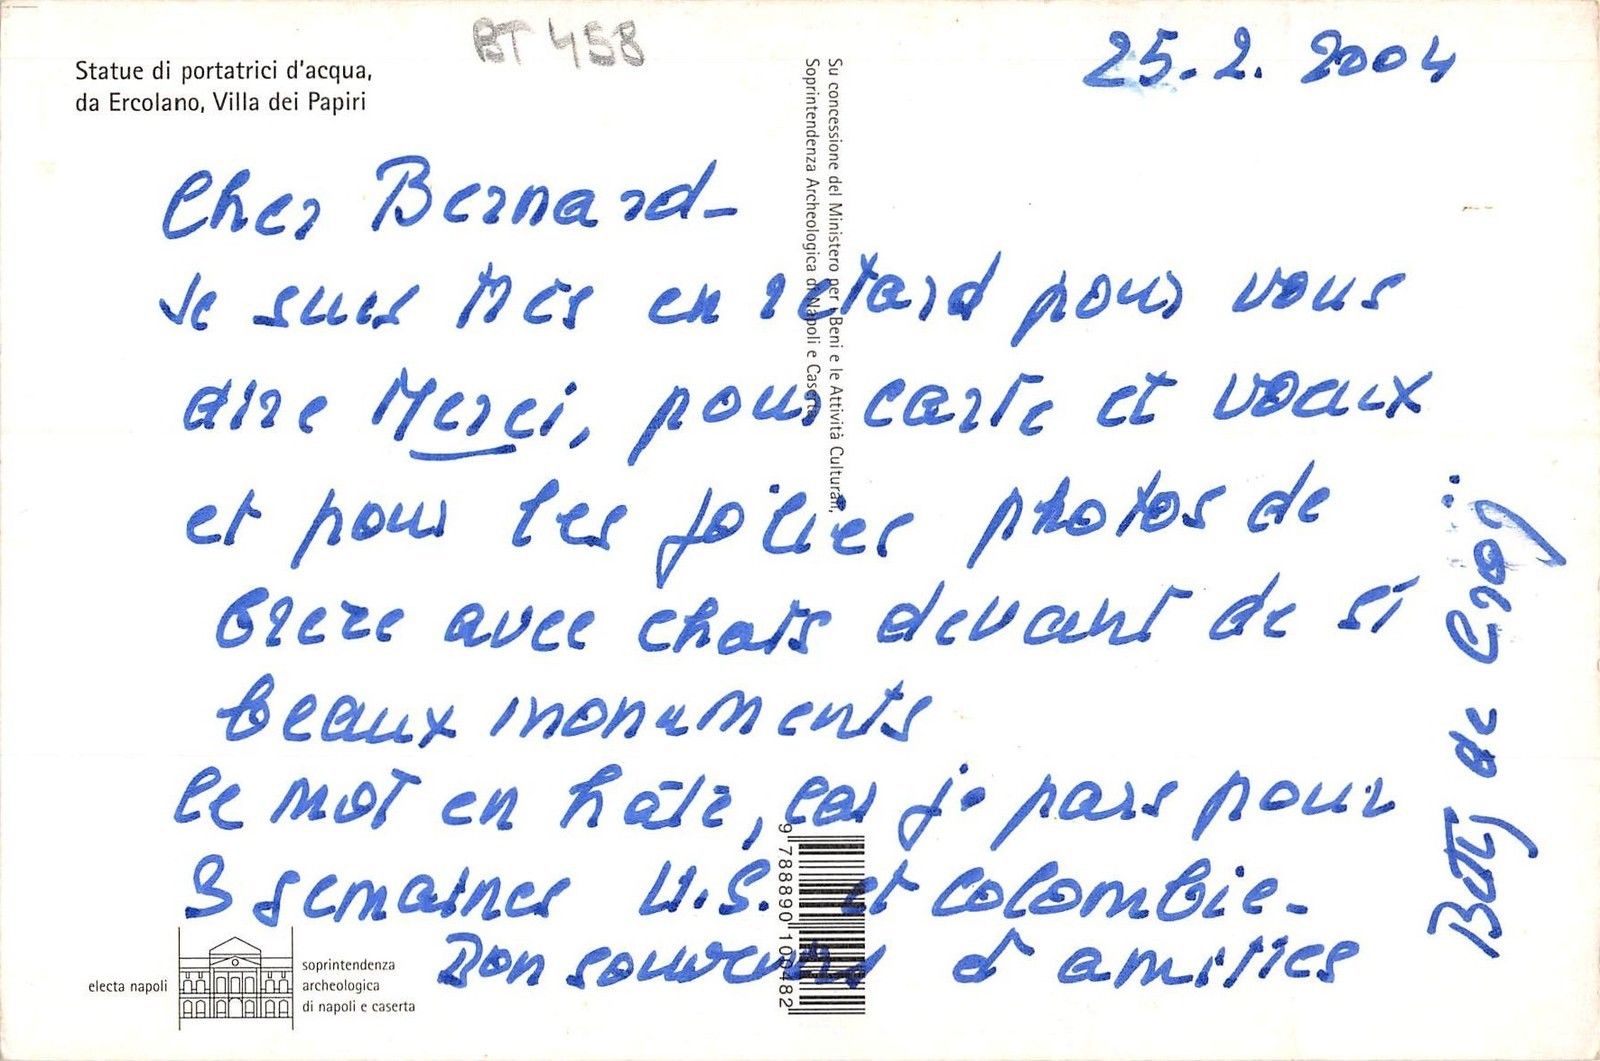 BT 458
25.2.2004
Statue di portatrici d'acqua,
da Ercolano, Villa dei Papiri
Su concessione del Ministero per i Beni e le Attività Culturali,
Soprintendenza Archeologica di Napoli e Caserta
Cher Bernard-
Je suis très en retard pour vous
dire Merci, pour carte et voeux
et pour les jolies photos de
Grece avec chats devant de si
beaux monuments
Ce mot en hâte, car je pars pour
3 semaines U.S. et Colombie-
Bon souvenir d'amitiés
Betty de Croÿ
9 788890 100482
electa napoli
soprintendenza
archeologica
di napoli e caserta